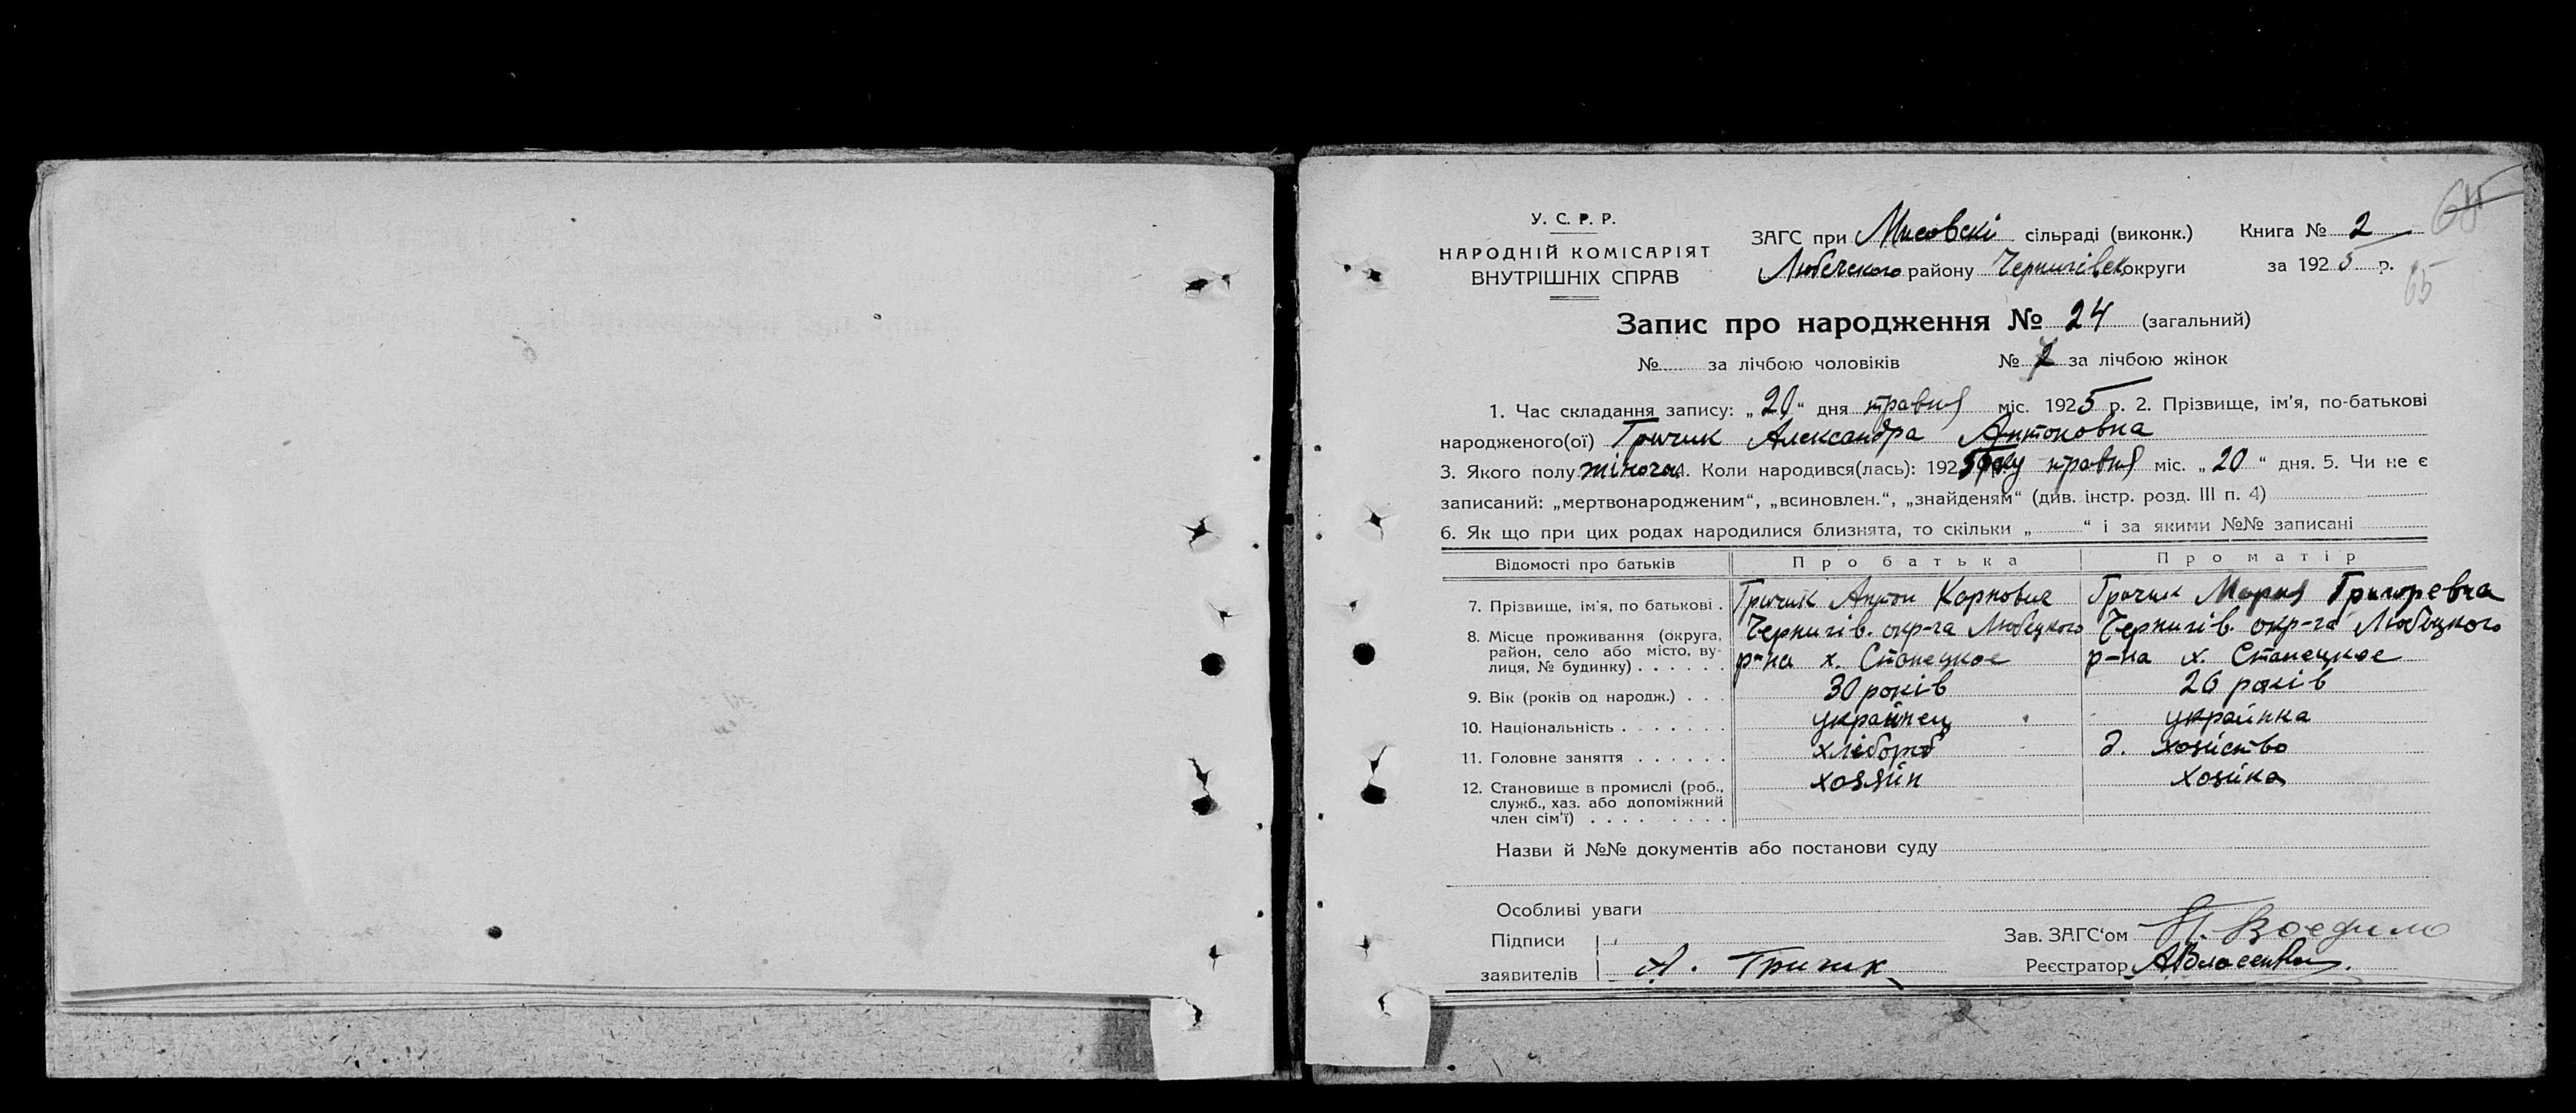 У. С. Р. Р.
НАРОДНІЙ КОМІСАРІЯТ
ВНУТРІШНІХ СПРАВ
ЗАГС при Мисовскі сільраді (виконк.) Книга № 2
Любечского району Чернигівск округи за 1925 р.
65
Запис про народження № 24 (загальний)
№ за лічбою чоловіків № за лічбою жінок
1. Час складання запису: „20“ дня травня міс. 1925 р. 2. Прізвище, ім’я, по-батькові
народженого(ої) Гричик Александра Антоновна
3. Якого полу жіноча 4. Коли народився(лась): 1925 року травня міс. „20“ дня. 5. Чи не є
записаний: „мертвонародженим“, „всиновлен.“, „знайденям“ (див. інстр. розд. III п. 4)
6. Як що при цих родах народилися близнята, то скільки „ “ і за якими №№ записані
Відомості про батьків Про батька Про матір
7. Прізвище, ім’я, по батькові . Гричик Антон Карпович Гричик Мария Григоревна
8. Місце проживання (округа, Чернигів. окр-га Любецкого Чернигів. окр-га Любецкого
район, село або місто, ву- р-на х. Станецкое р-на х. Станецкое
лиця, № будинку) . . . . . .
9. Вік (років од народж.) . . . 30 років 26 років
10. Національність . . . . . . . украйнец украинка
11. Головне заняття . . . . . . хлібороб д. хозяйство
12. Становище в промислі (роб., хоззяйн хозяйка
служб., хаз. або допоміжний
член сім’ї) . . . . . . . . .
Назви й №№ документів або постанови суду
Особливі уваги
Підписи Зав. ЗАГС‘ом
заявителів А. Гричик Реєстратор А Власенко